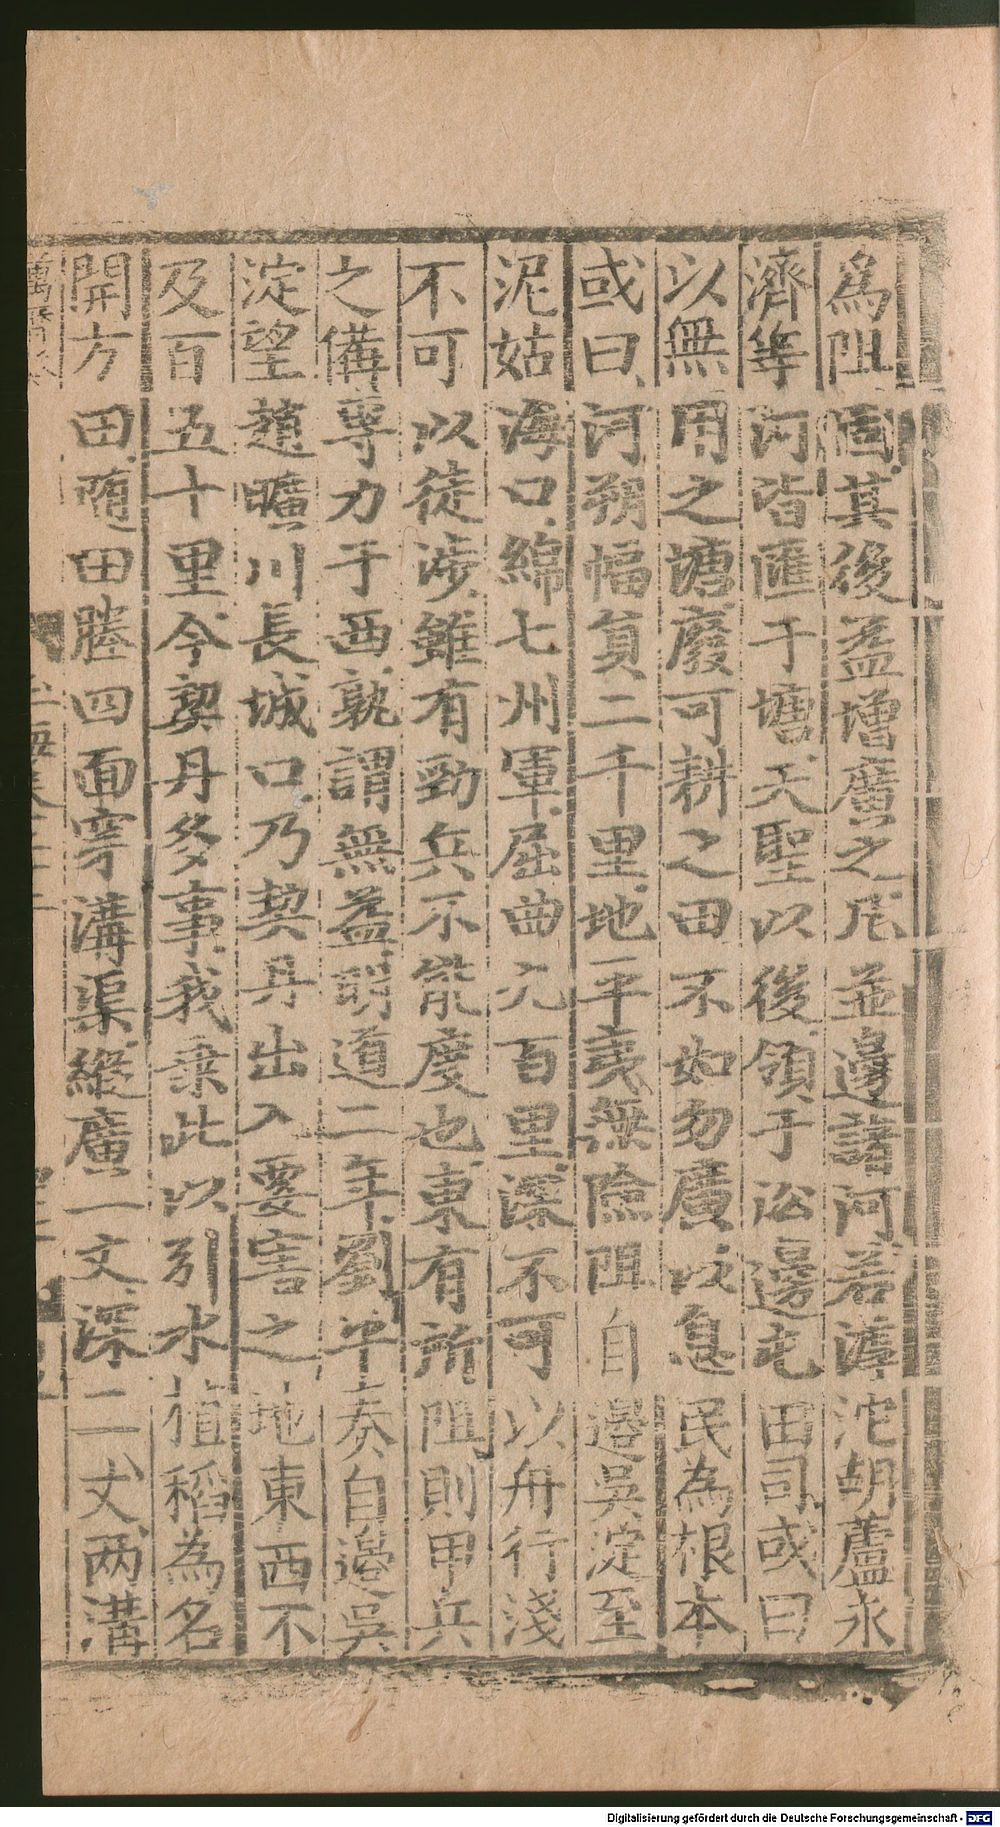 為阻固其後益增廣之凡並邊諸河若滹沱胡蘆永
濟等河皆匯于塘天聖以後領于沿邊屯田司或曰
以無用之塘廢可耕之田不如勿廣以息民為根本
或曰河朔幅員二千里地平夷無險阻自邊吳淀至
泥姑海口綿七州軍屈曲九百里深不可以舟行淺
不可以徒涉雖有勁兵不能度也東有所阻則甲兵
之備專力于西孰謂無益明道二年劉平奏自邊吳
淀望趙曠川長城口乃契丹出入要害之地東西不
及百五十里今契丹多事我乗此以引水植稻為名
開方田隨田塍四面穿溝渠縱廣一丈深二丈两溝
Digitalisierung gefördert durch die Deutsche Forschungsgemeinschaft - DFG